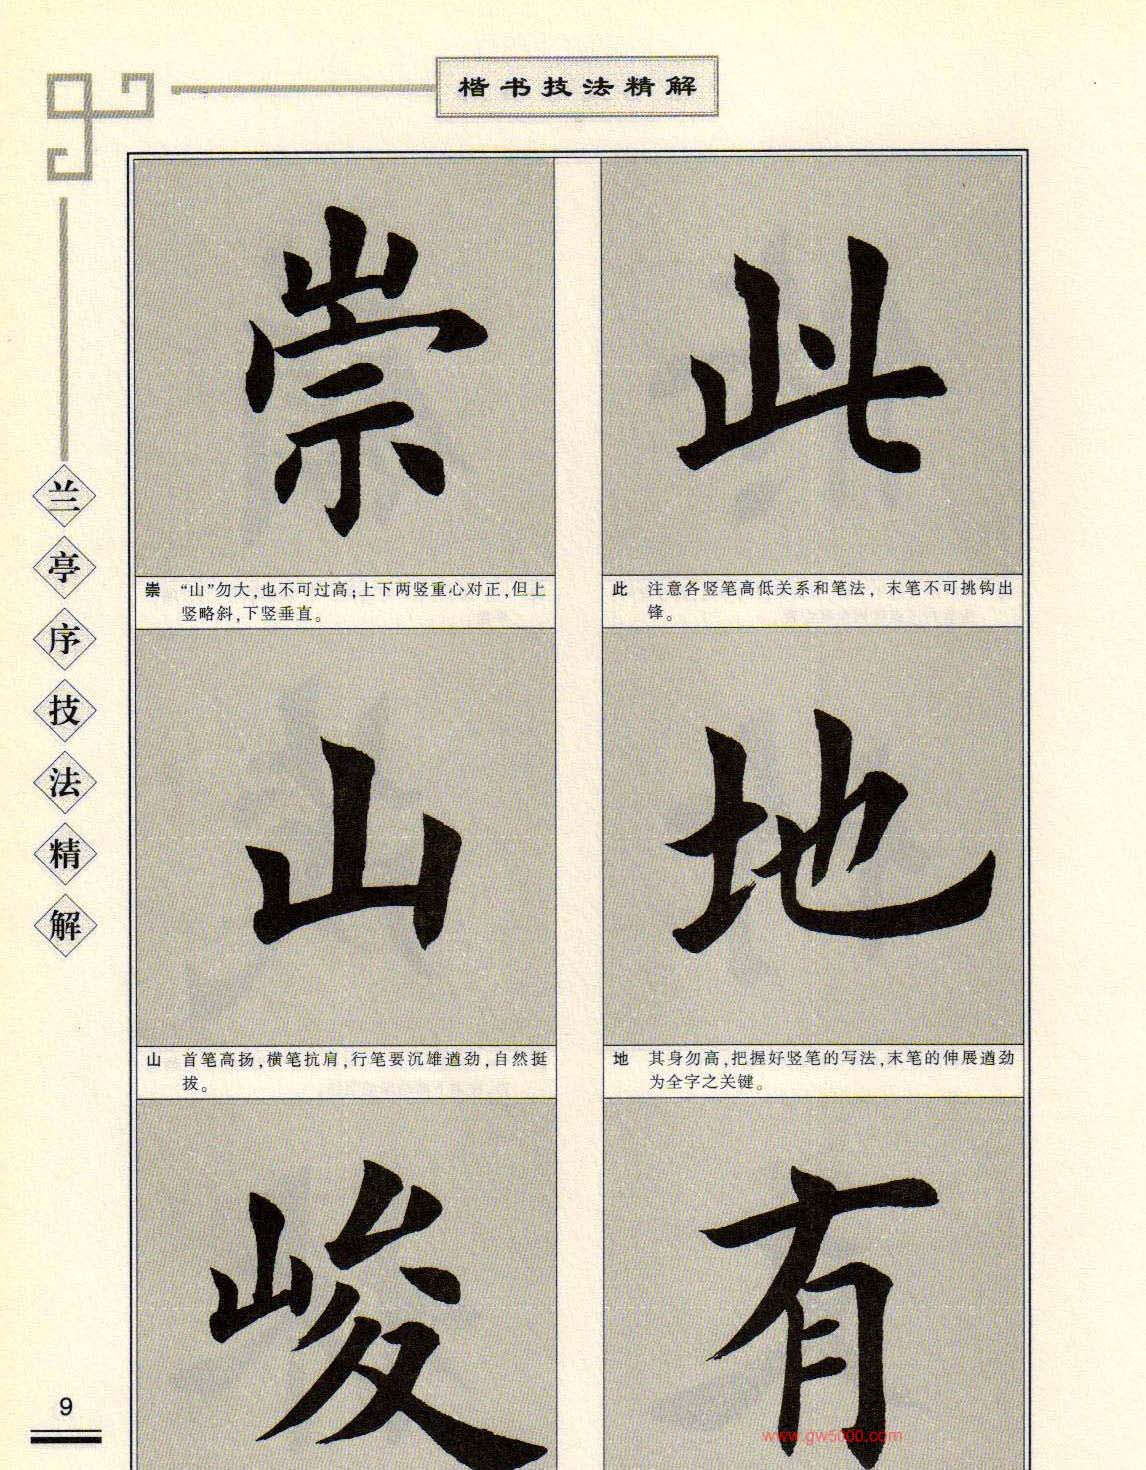 楷书技法精解
兰亭序技法精解
此
此 注意各竖笔高低关系和笔法，末笔不可挑钩出
锋。
地
地 其身勿高，把握好竖笔的写法，末笔的伸展遒劲
为全字之关键。
有
崇
崇 “山”勿大，也不可过高；上下两竖重心对正，但上
竖略斜，下竖垂直。
山
山 首笔高扬，横笔抗肩，行笔要沉雄遒劲，自然挺
拔。
峻
9
www.gw5000.com